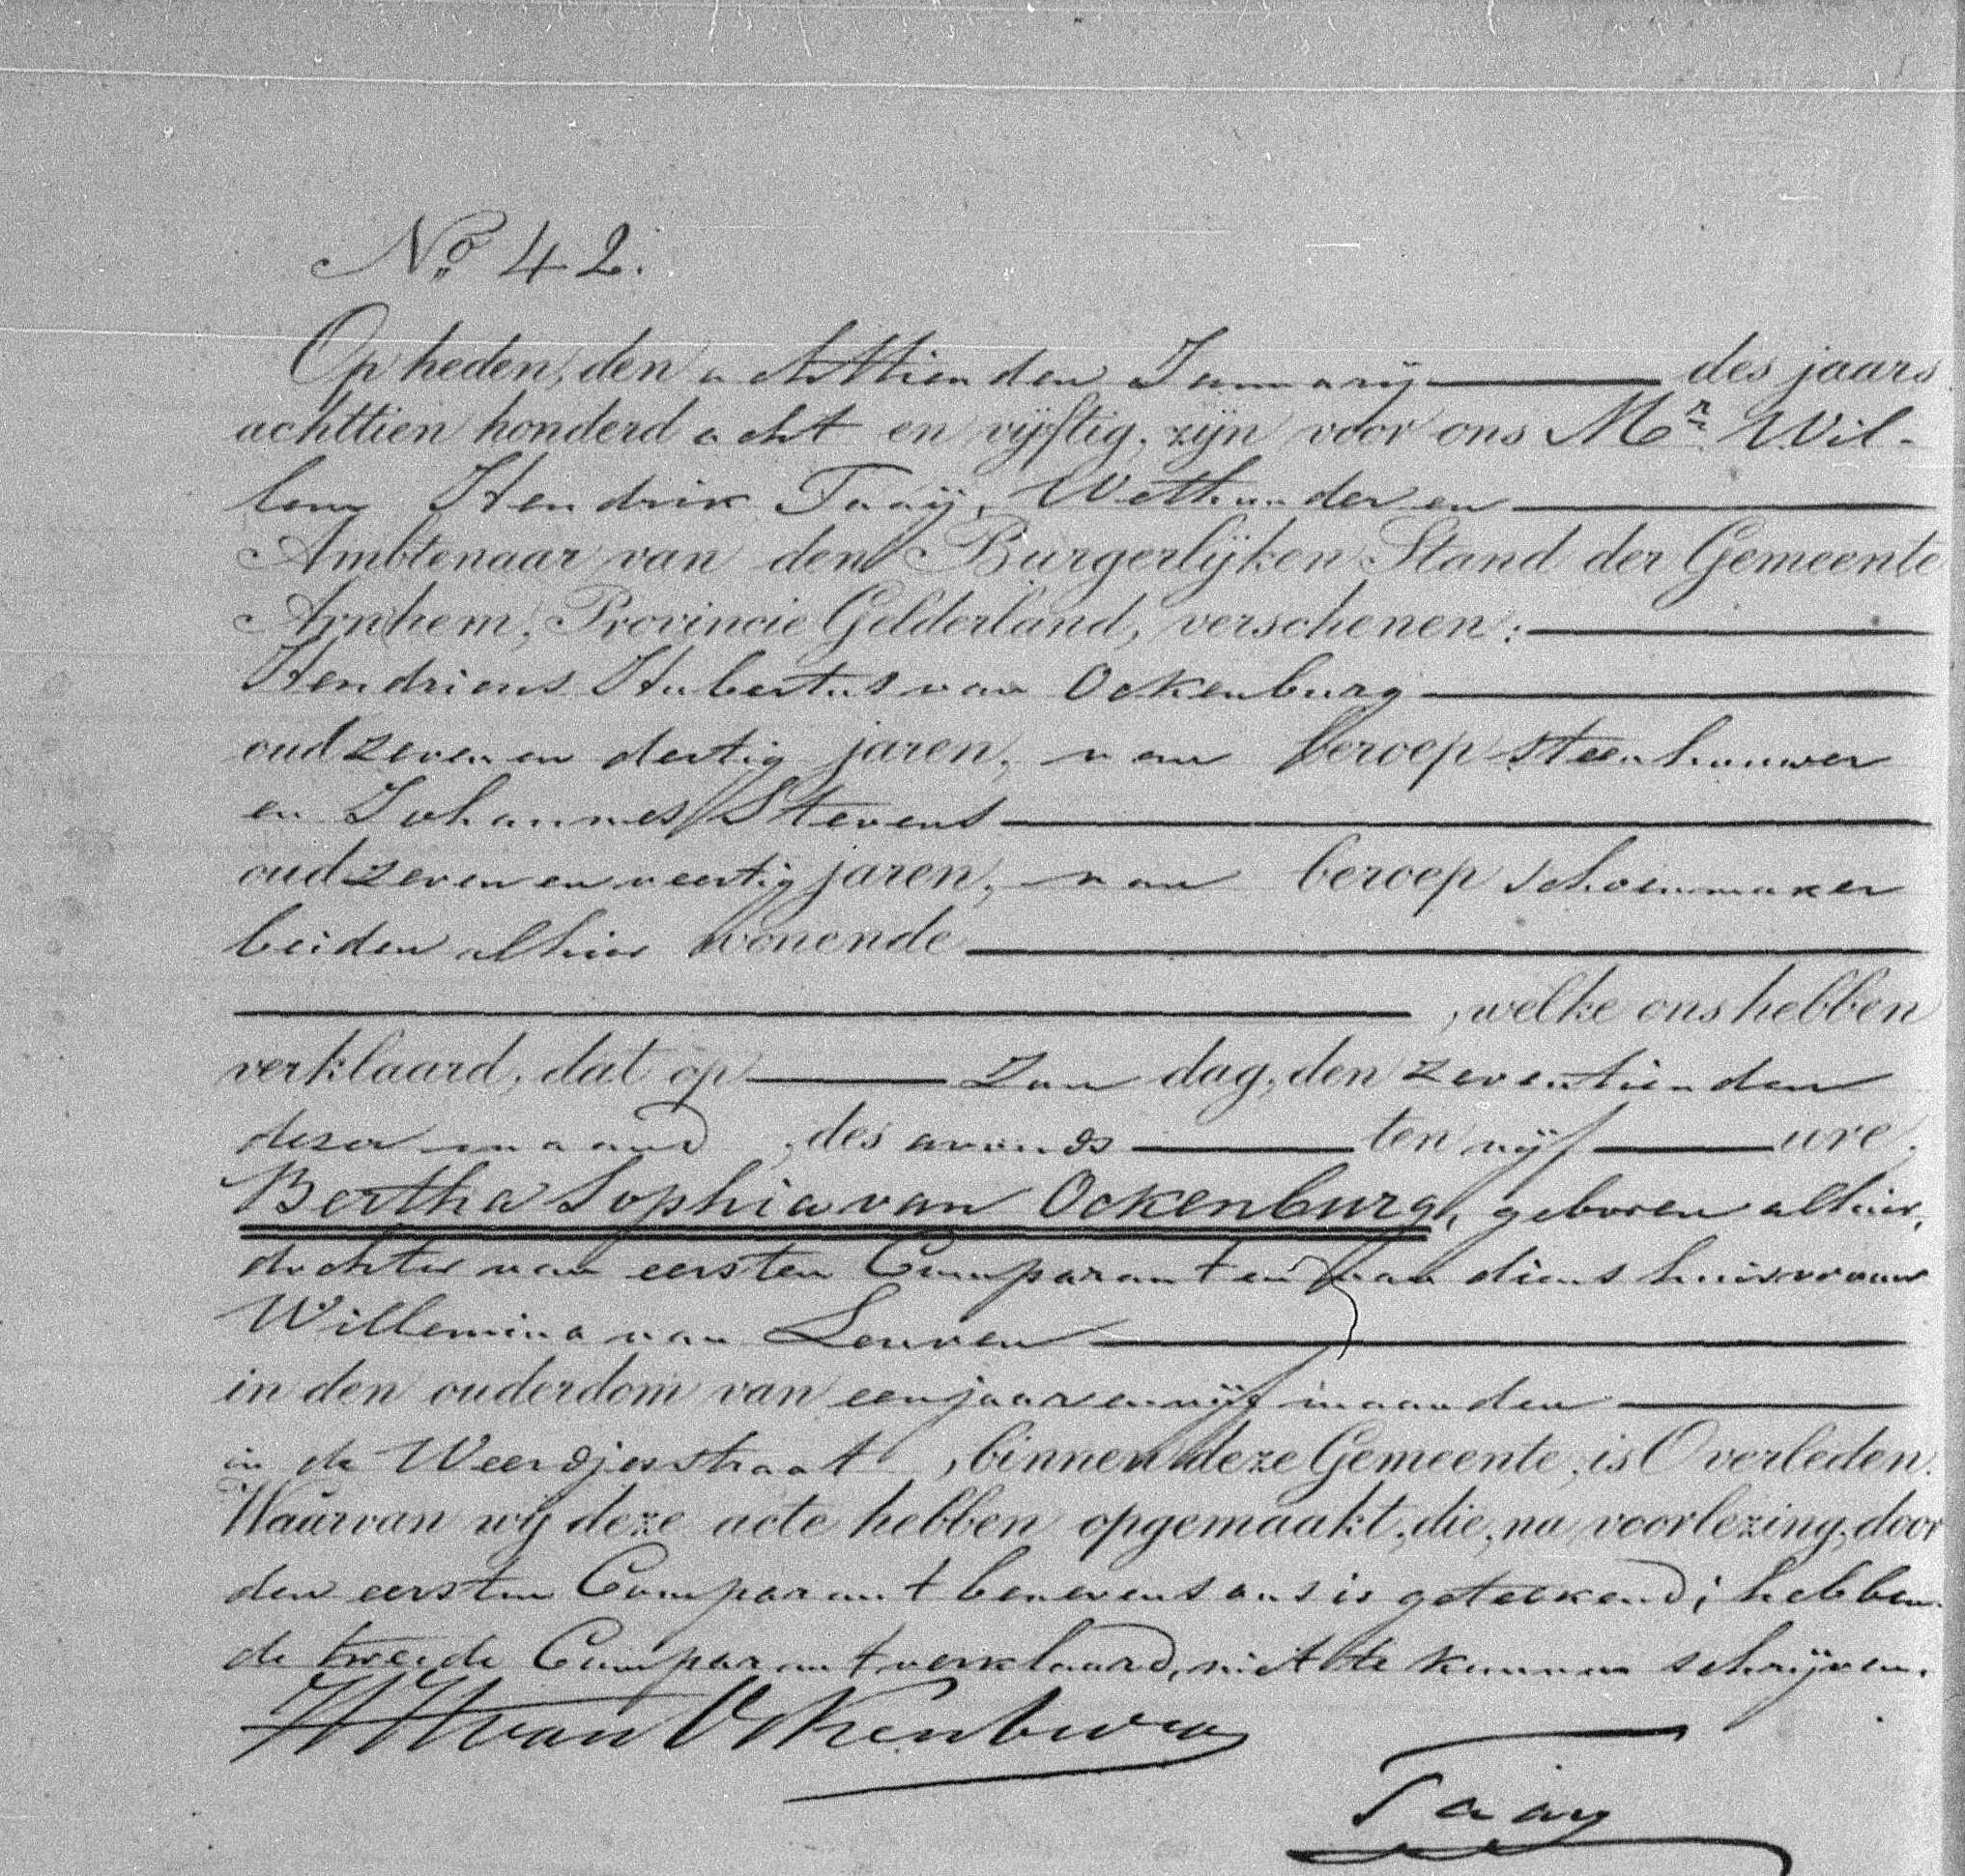 No. 42.
Op heden, den achttienden January des jaars
achttien honderd acht en vyftig, zyn voor ons Mr. Wil-
lem Hendrik Taaÿ, Wethouder en
Ambtenaar van den Burgerlyken Stand der Gemeente
Arnhem, Provincie Gelderland, verschenen:
Hendricus Hubertus van Ockenburg
oud zeven en dertig jaren, van beroep steenhouwer
en Johannes Stevens
oud zeven en veertig jaren, van beroep schoenmaker
beiden alhier wonende
, welke ons hebben
verklaard, dat op Zon dag, den zeventienden
dezer maand, des avonds ten vyf ure,
Bertha Sophia van Ockenburg, geboren alhier,
dochter van eersten Comparant en van diens huisvrouw
Willemina van Leuven
in den ouderdom van een jaar en vyf maanden
in de Weerdjesstraat, binnen deze Gemeente, is Overleden.
Waarvan wy deze acte hebben opgemaakt, die, na voorlezing, door
den eersten Comparant benevens ons is geteekend; hebben-
de tweede Comparant verklaard, niet te kunnen schryven.
HHvan Ockenburg
Taaÿ